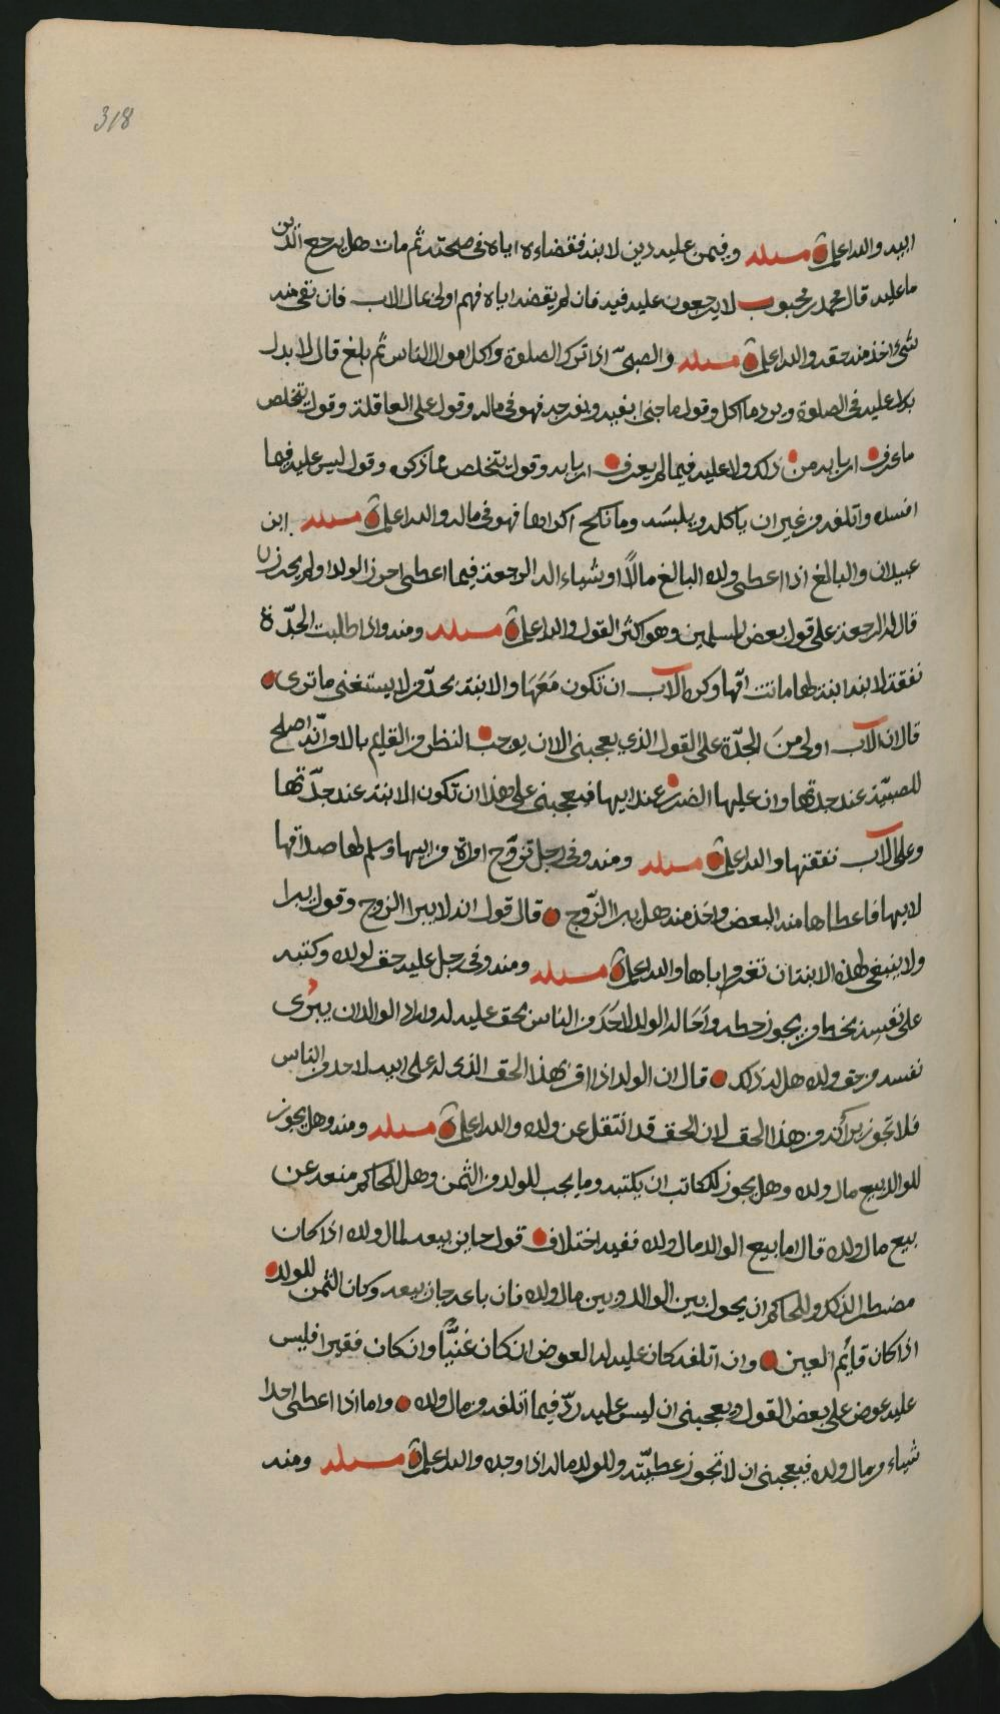 318
ابيه والله اعلم مسئلة وفيمن عليه دين لابنه فقضاءه اياه في صحته ثم مات هل يرجع الدين
ما عليه قال محمد بن محبوب لا يرجعون عليه فيه فان لم يقضه اياه فهم اولى بمال الاب فان بقي منه
شيء اخذ منه حقه والله اعلم مسئلة والصبيّ اذا ترك الصلوة واكل اموال الناس ثم بلغ قال لا بدل
بدل عليه في الصلوة ويرد ما اكل وقول ما جنى بفيه وبفرجه فهو في ماله وقول على العاقلة وقول يتخلص
ما عرف اربابه من ذلك ولا عليه فيما لم يعرف اربابه وقول يتخلص مما ذكره وقول ليس عليه فيما
افسده واتلفه من غير ان ياكله ويلبسه وما نكح اكراها فهو في ماله والله اعلم مسئلة ابن
عبيدان والبالغ اذا اعطى ولده البالغ مالاً او شياء اله الرجعة فيما اعطى احرز الولد او لم يحرز
قال له الرجعة على قول بعض المسلمين وهو اكثر القول والله اعلم مسئلة ومنه واذا طلبت الجدّة
نفقة لابنة ابنتها ماتت امّها وكره الاب ان تكون مَعَهَا والابنة بحدّ من لا يستغني ما ترى
قال ان الاب اولى منَ الجدّة على القول الذي يعجبني الا ان يوجب النظر من القيام بالامر انّه اصلح
للصبيّة عند جدتها وان عليها الضرر عند ابيها فيعجبني على هذا ان تكون الابنة عند جدّتها
وعلى الاب نفقتها والله اعلم مسئلة ومنه وفي رجل تزوّج امراة من ابيها وسلم لها صداقها
لابيها فاعطاها منه البعض واخذ منه هل يبرا الزّوج قال قول انه لا يبرا الزوج وقول يبرا
ولا ينبغي لهذه الابنة ان تغرم اباها والله اعلم مسئلة ومنه وفي رجل عليه حق لولده وكتبه
على نفسه بخط من يجوز خطه واَحَاله الولد لاحَدَ من الناس بحق عليه له واراد الوالد ان يبرى
نفسه من حق ولده هل له ذلك قال ان الولد اذا اقر بهذا الحق الذى له على ابيه لاحد من الناس
فلا تجوز براُته من هذا الحق لان الحق قد انتقل عن ولده والله اعلم مسئلة ومنه وهل يجوز
للوالد بيع مال ولده وهل يجوز للكاتب ان يكتبه وما يجب للولد من الثمن وهل للحاكم منعه عن
بيع مال ولده قال اما بيع الوالد مال ولده ففيه اختلاف قول جايز بيعه لمال ولده اذا كان
مضطرا لذلك وللحاكم ان يحول بين الوالد وبين مال ولده فان باعه جاز بيعه وكان الثمن للولد
اذا كان قايُم العين وان اتلفه كان عليه له العوض ان كان غنيًّا وان كان فقيرا فليس
عليه عوض على بعض القول ويعجبني ان ليس عليه ردّ فيما اتلفه من مال ولده واما اذا اعطى احدا
شياء من مال ولده فيعجبني ان لا تجوز عطيّته وللولد ماله اذا وجده والله اعلم مسئلة ومنه